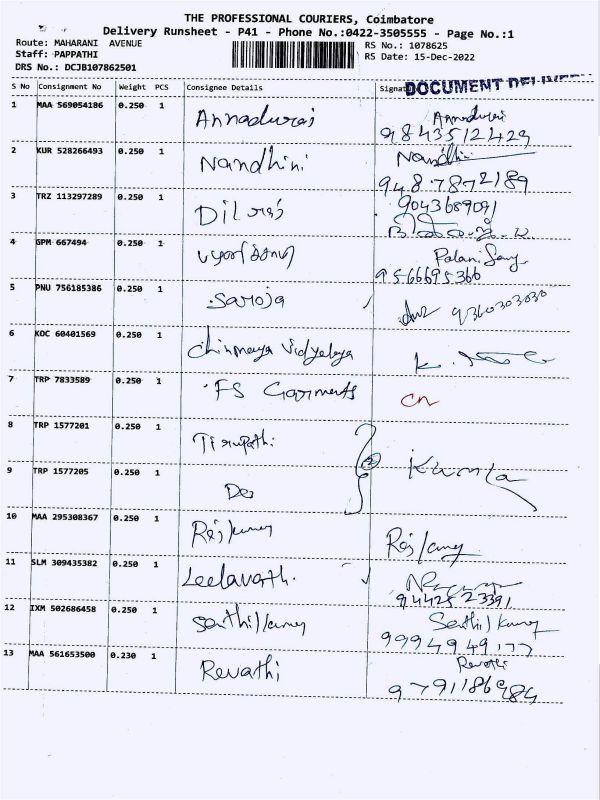 THE PROFESSIONAL COURIERS, Coimbatore
Delivery Runsheet - P41 - Phone No.:0422-3505555 - Page No.:1
Route: MAHARANI AVENUE
Staff: PAPPATHI
DRS No.: DCJB107862501
RS No.: 1078625
RS Date: 15-Dec-2022
S No Consignment No Weight PCS Consignee Details Signat
DOCUMENT DELIVE
1 MAA 569054186 0.250 1 Annadurai Annadurai
9843512429
2 KUR 528266493 0.250 1 Nandhini Nandhi
9487872189
3 TRZ 113297289 0.250 1 Dilraj 9043689091
4 GPM 667494 0.250 1 Palani Samy
9566695366
5 PNU 756185386 0.250 1 Saroja 9360303030
6 KOC 60401569 0.250 1 Chinmaya Vidyalaya K.
7 TRP 7833589 0.250 1 FS Garments CN
8 TRP 1577201 0.250 1 Tirupathi
9 TRP 1577205 0.250 1 Do Kamala
10 MAA 295308367 0.250 1 Rajkumar Rajkumar
11 SLM 309435382 0.250 1 Leelavath.
9442523391
12 IXM 502686458 0.250 1 Senthilkumar Senthilkumar
9994949177
13 MAA 561653500 0.230 1 Revathi Revathi
9791186984